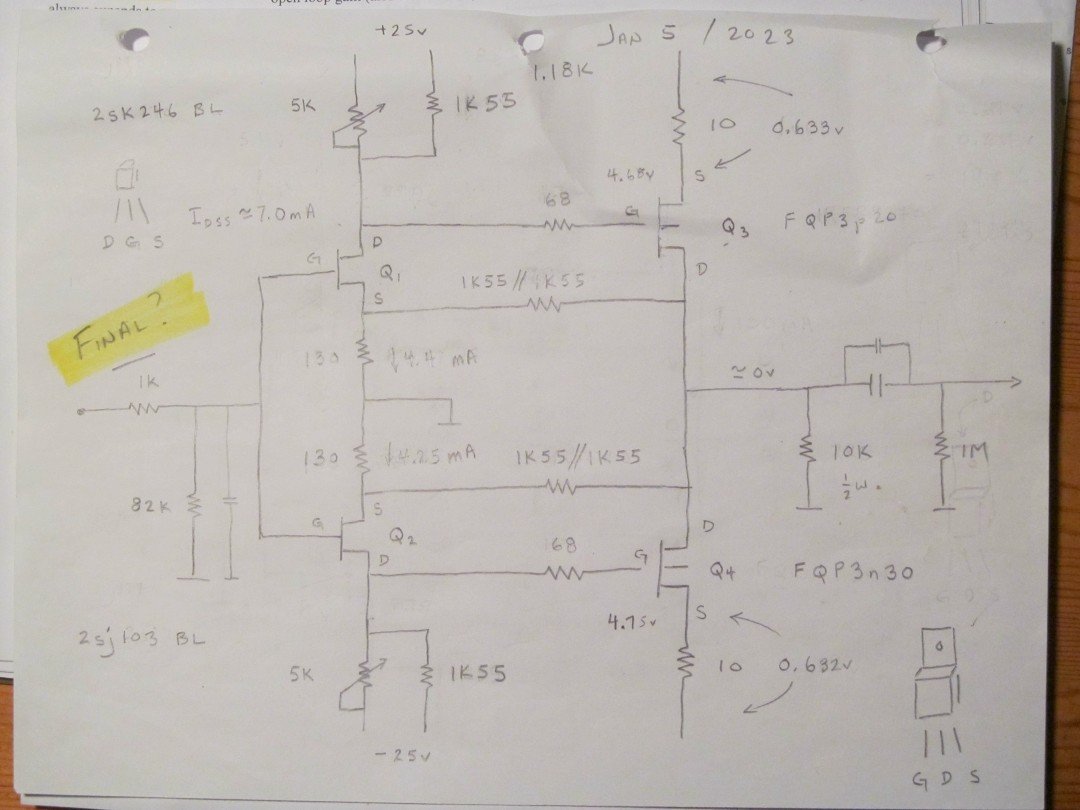 JAN 5 / 2023
+25v
1.18K
2SK246 BL
5K
1K55
10
0.633v
4.68v
S
68
G
Q3
FQP3p20
IDSS ≈ 7.0mA
D G S
D
G
Q1
S
D
1K55 // 1K55
FINAL?
130
↓4.4 mA
1K
≈ 0v
130
↓4.25 mA
1K55 // 1K55
10K
½ W.
1M
82K
S
G
Q2
D
68
D
G
Q4
FQP3n30
S
4.75v
2sj103 BL
5K
1K55
10
0.632v
-25v
G D S